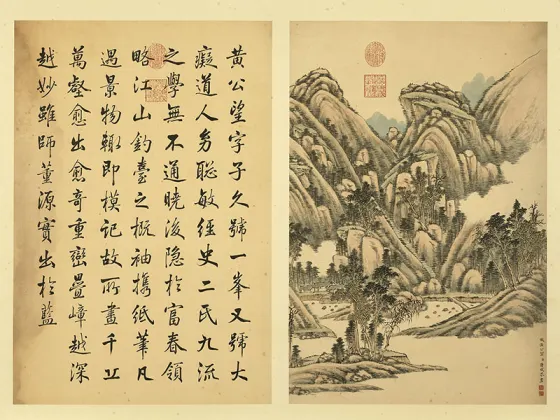 黃公望字子久號一峯又號大
癡道人幼聰敏經史二氏九流
之學無不通曉後隐於富春領
略江山釣臺之概袖攜紙筆凡
遇景物輙即模記故所畫千丘
萬壑愈出愈奇重巒疊嶂越深
越妙雖師董源實出於藍